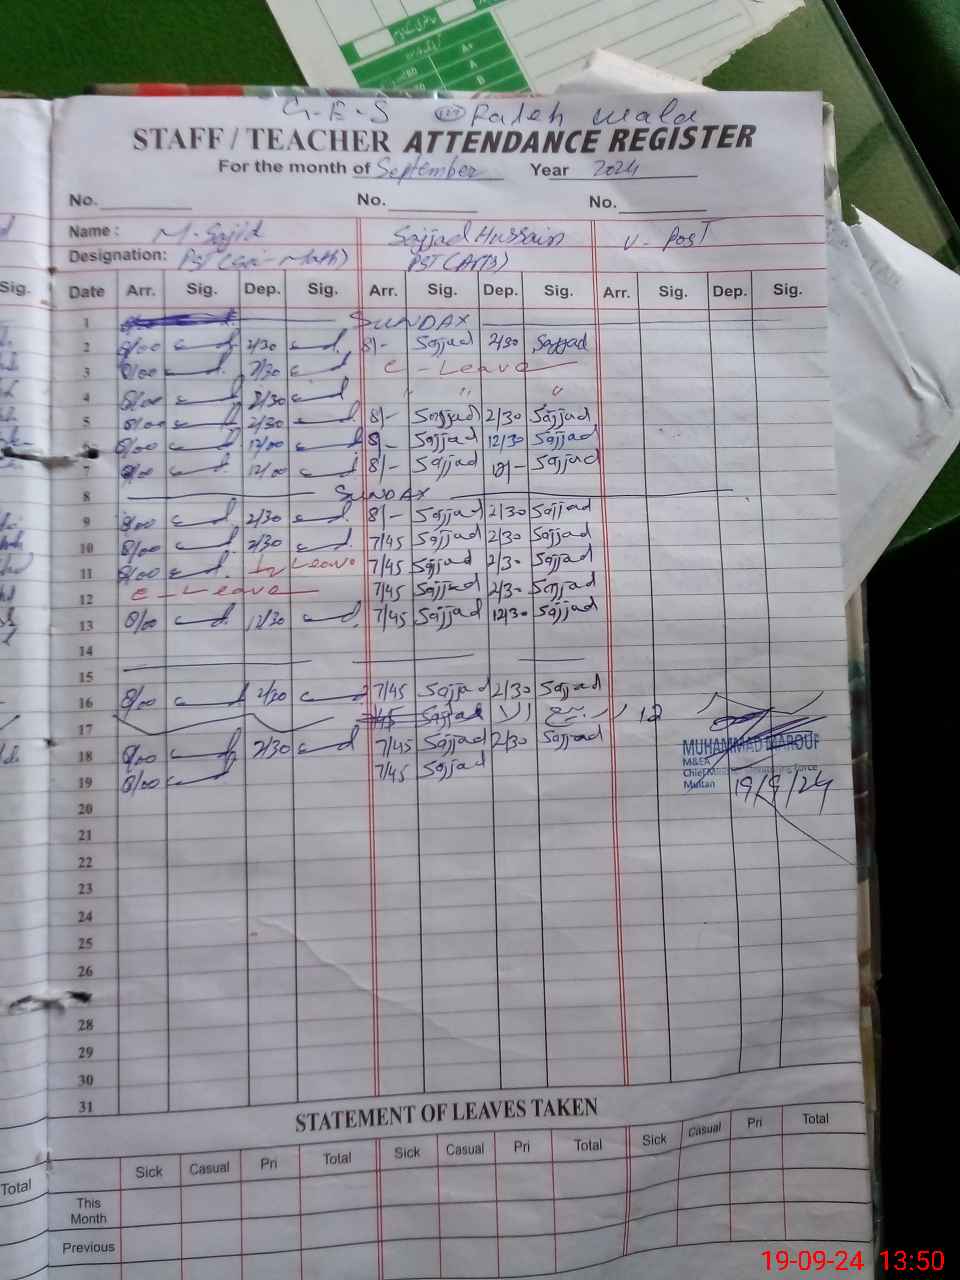 A+
A
B
G-E-S Rateh wala
STAFF / TEACHER ATTENDANCE REGISTER
For the month of September Year 2024
No. No. No.
Name : M-Sajid Sajjad Hussain V-Post
Designation: PST (Sci-Math) PST (Arts)
Sig. Date Arr. Sig. Dep. Sig. Arr. Sig. Dep. Sig. Arr. Sig. Dep. Sig.
1 SUNDAY
2 8/00 2/30 8/- Sajjad 2/30 Sajjad
3 8/00 2/30 C-Leave
4 8/00 2/30 " " "
5 8/00 2/30 8/- Sajjad 2/30 Sajjad
6 8/00 12/00 8/- Sajjad 12/30 Sajjad
7 8/00 12/00 8/- Sajjad 12/- Sajjad
8 SUNDAY
9 8/00 2/30 8/- Sajjad 2/30 Sajjad
10 8/00 2/30 7/45 Sajjad 2/30 Sajjad
11 8/00 Leave 7/45 Sajjad 2/30 Sajjad
12 C-Leave 7/45 Sajjad 2/30 Sajjad
13 8/00 12/30 7/45 Sajjad 12/30 Sajjad
14
15
16 8/00 2/30 7/45 Sajjad 2/30 Sajjad
17 45 Sajjad 12
18 8/00 2/30 7/45 Sajjad 2/30 Sajjad
19 8/00 7/45 Sajjad
MUHAMMAD MAROOF
M&EA
Chief Minister Monitoring Force
Multan 19/9/24
20
21
22
23
24
25
26
28
29
30
31
STATEMENT OF LEAVES TAKEN
Sick Casual Pri Total Sick Casual Pri Total Sick Casual Pri Total
Total This Month
Previous
19-09-24 13:50